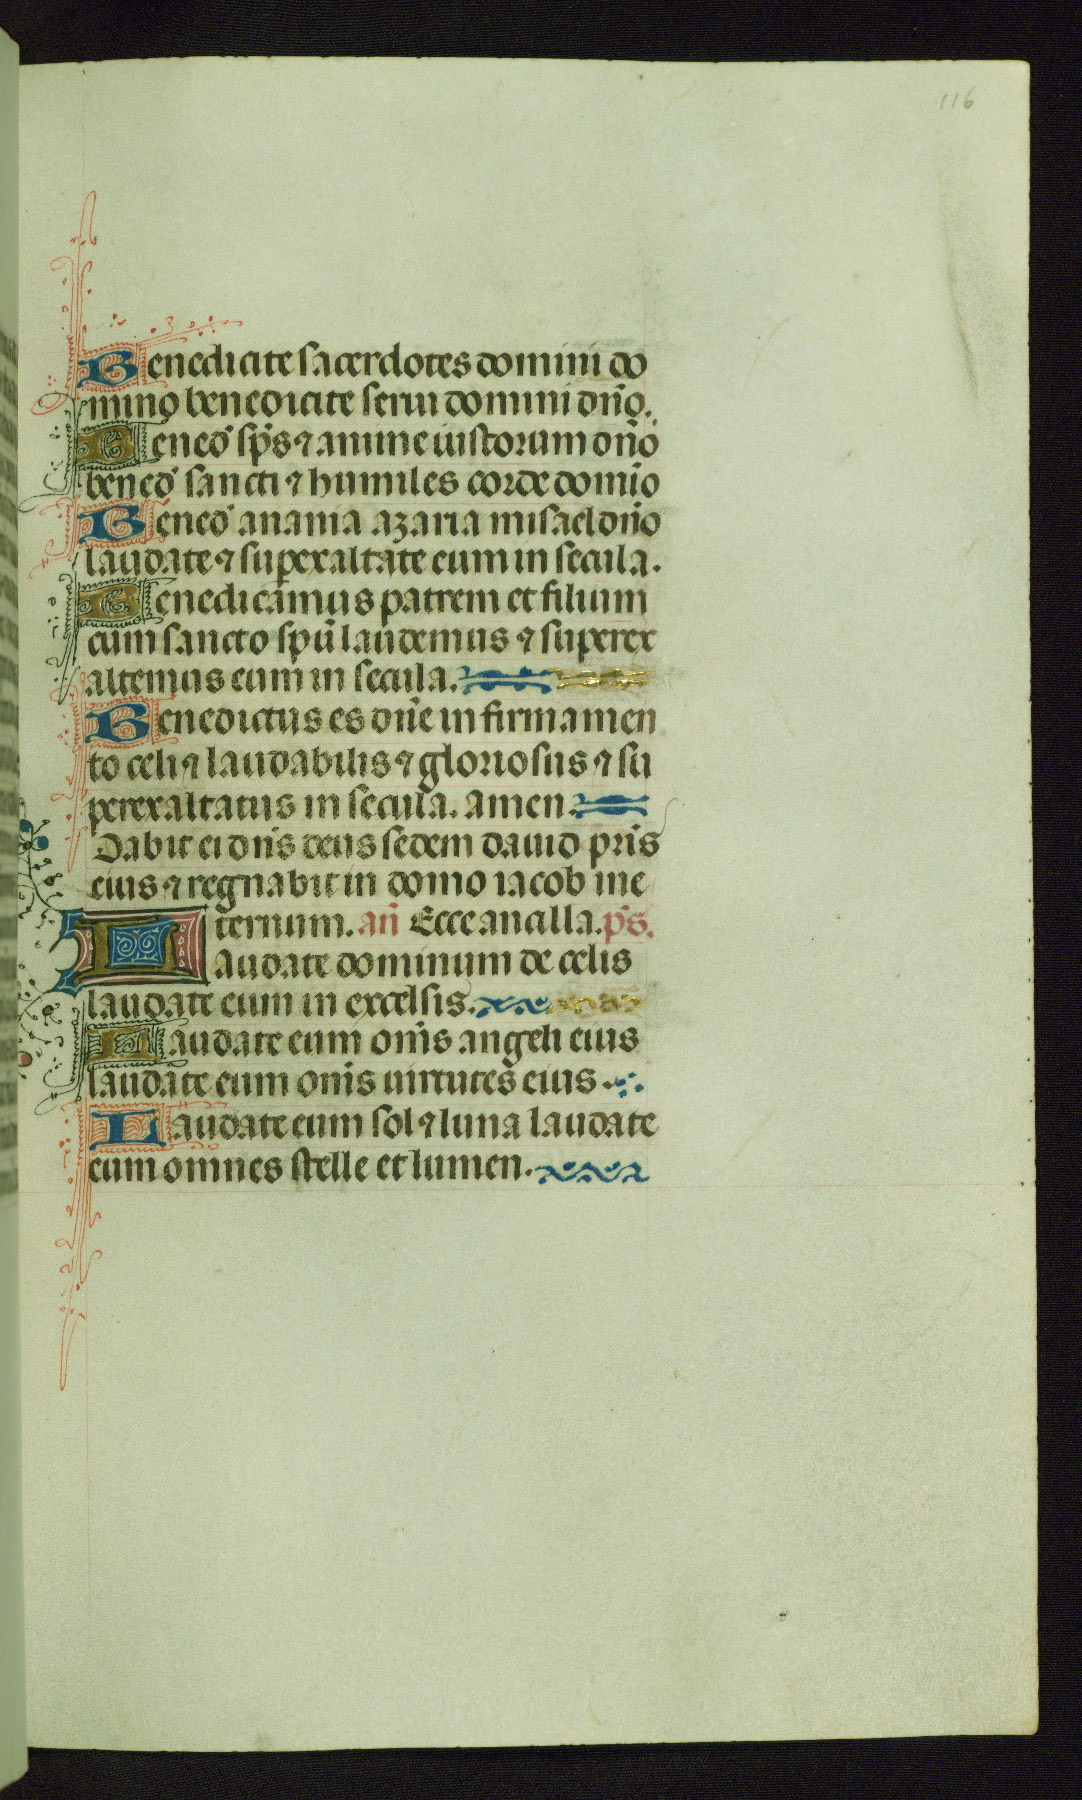 116
Benedicite sacerdotes domini do
mino benedicite serui domini dn̄o.
Bened̄ sp̄s ⁊ anime iustorum dn̄o
bened̄ sancti ⁊ humiles corde domīo
Bened̄ anania azaria misael dn̄o
laudate ⁊ superxaltate eum in secula.
Benedicamus patrem et filium
cum sancto spū laudemus ⁊ superex
altemus eum in secula.
Benedictus es dn̄e in firmamen
to celi ⁊ laudabilis ⁊ gloriosus ⁊ su
perexaltatus in secula. amen.
Dabit ei dn̄s deus sedem dauid pr̄is
eius ⁊ regnabit in domo iacob in e
ternum. an̄ Ecce ancilla. ps̄.
Laudate dominum de celis
laudate eum in excelsis.
Laudate eum om̄s angeli eius
laudate eum om̄s uirtutes eius.
Laudate eum sol ⁊ luna laudate
eum omnes stelle et lumen.